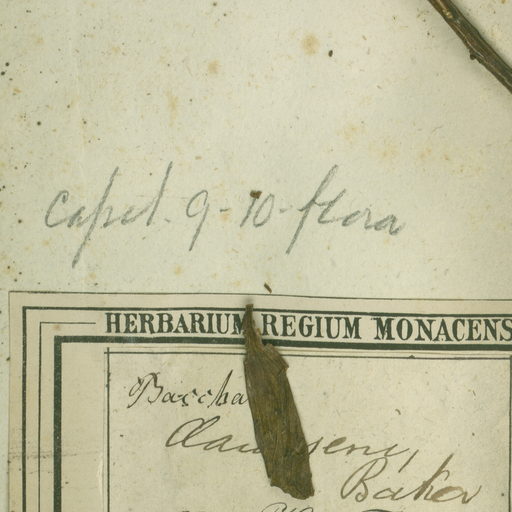 capit. 9-10-flora
HERBARIUM REGIUM MONACENS
Baccha
Baker